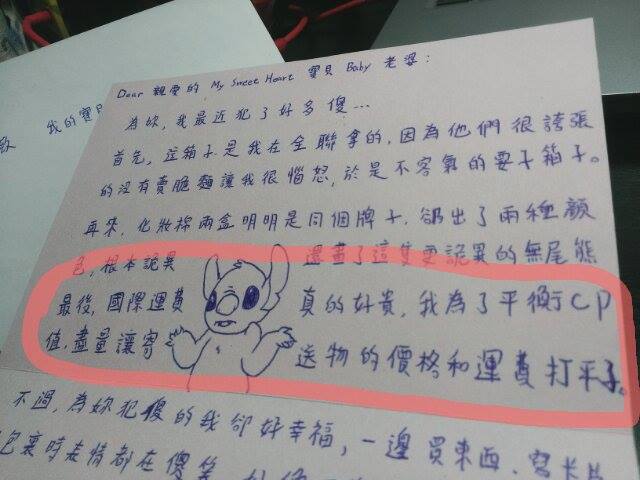 Dear 親愛的 My Sweet Heart 寶貝 Baby 老婆：
我的寶貝
為妳，我最近犯了好多傻...
首先，這箱子是我在全聯拿的，因為他們很誇張
的沒有賣脆麵讓我很惱怒，於是不客氣的要了箱子。
再來，化妝棉兩盒明明是同個牌子，卻出了兩種顏
色，根本詭異 還畫了這隻更詭異的無尾熊
最後，國際運費 真的好貴，我為了平衡CP
值，盡量讓寄 送物的價格和運費打平了。
不過，為妳犯傻的我卻好幸福，一邊買東西、寫卡片
包裹時表情都在傻笑